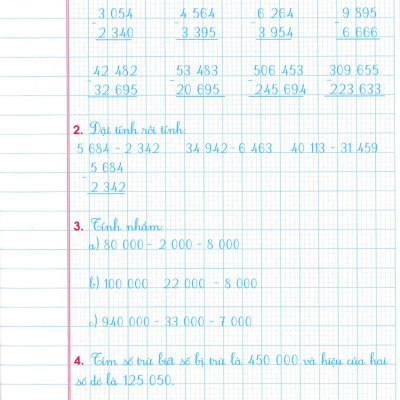 3 054 4 564 6 264 9 895
- - - -
2 340 3 395 3 954 6 666
42 482 53 483 506 453 309 655
- - - -
32 695 20 695 245 694 223 633
2. Đặt tính rồi tính:
5 684 - 2 342 34 942 - 6 463 40 113 - 31 459
5 684
-
2 342
3. Tính nhẩm:
a) 80 000 - 2 000 - 8 000
b) 100 000 22 000 - 8 000
c) 940 000 - 33 000 - 7 000
4. Tìm số trừ biết số bị trừ là 450 000 và hiệu của hai
số đó là 125 050.